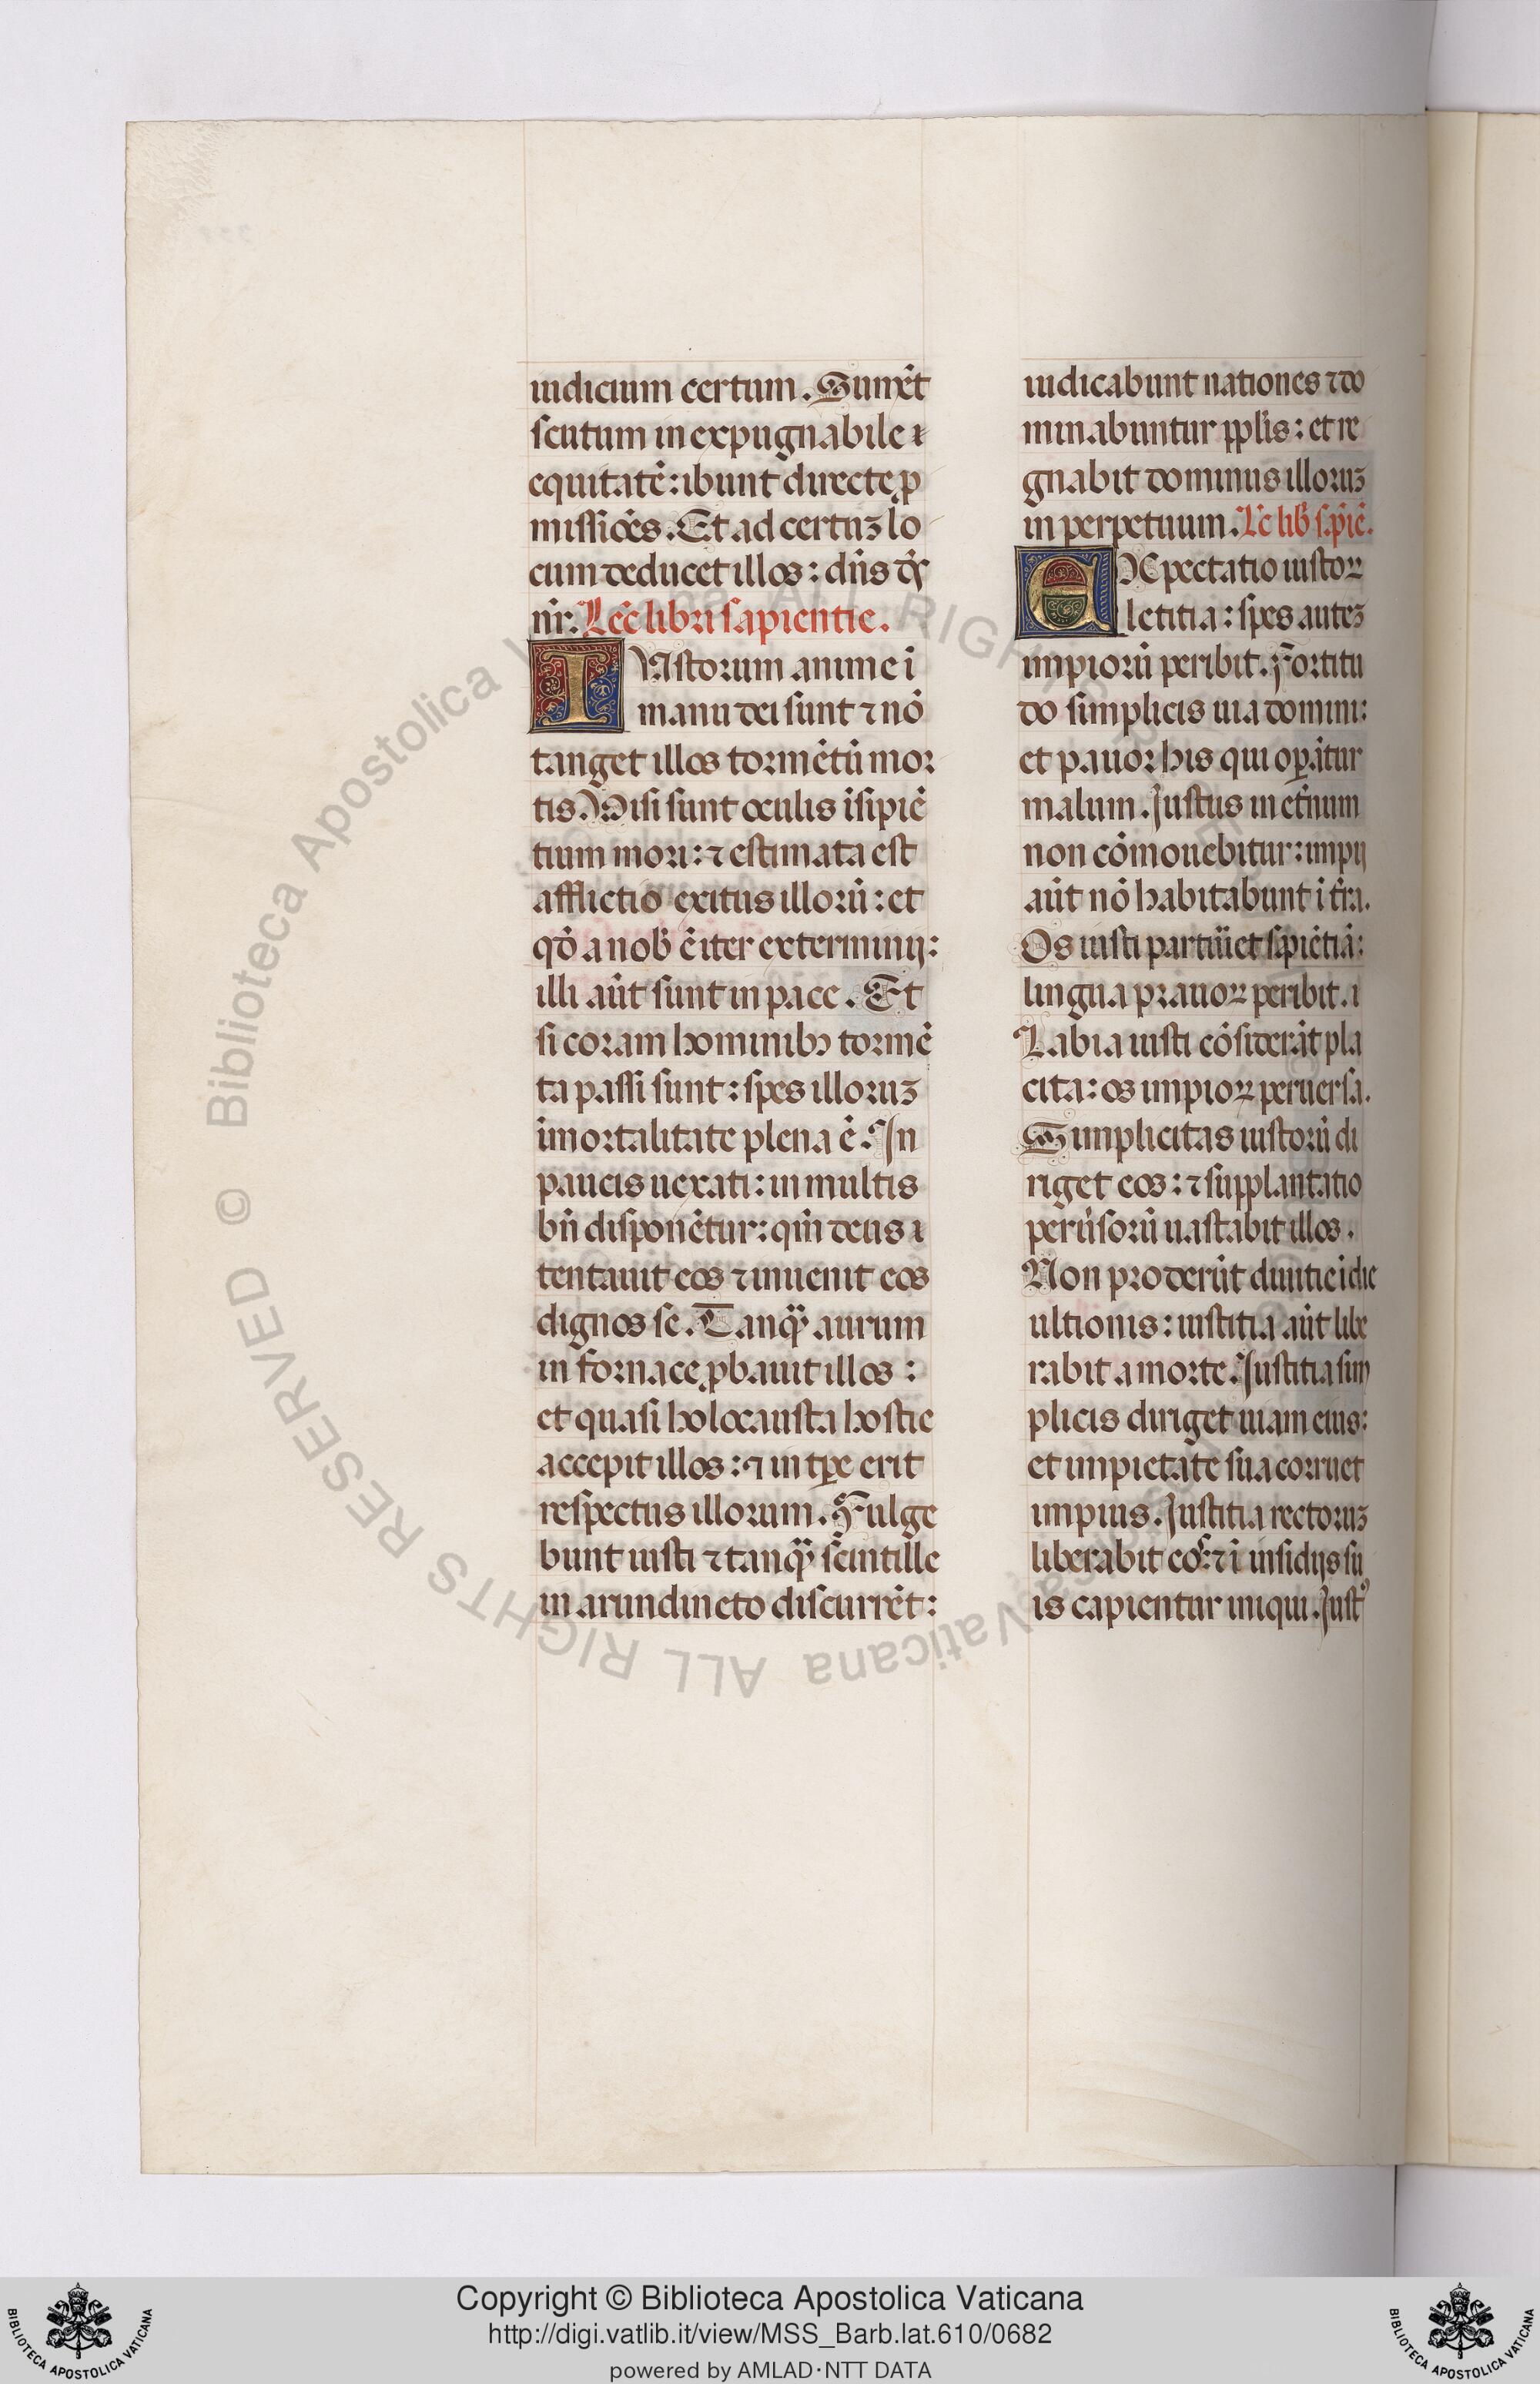 iudicium certum. Sumẽt
scutum inexpugnabile ⁊
equitatẽ: ibunt directe ꝑ
missiões. Et ad certuꝫ lo
cum deducet illos: dñs dẽs
nr̃. Lec̃ libri sapientie.
IUstorum anime ĩ
manu dei sunt ⁊ nõ
tanget illos tormẽtũ mor
tis. Visi sunt oculis ĩsipiẽ
tium mori: ⁊ estimata est
afflictio exitus illorũ: et
qđ a nob̃ ẽ iter exterminij:
illi aũt sunt in pace. Et
si coram hominibꝫ tormẽ
ta passi sunt: spes illoruꝫ
ĩmortalitate plena ẽ. In
paucis uexati: in multis
bñ disponẽtur: qm̃ deus
tentauit eos ⁊ inuenit eos
dignos se. Tanq̃ aurum
in fornace ꝓbauit illos:
et quasi holocausta hostie
accepit illos: ⁊ in tꝑe erit
respectus illorum. Fulge
bunt iusti ⁊ tanq̃ scintille
in arundineto discurrẽt:
iudicabunt nationes ⁊ do
minabuntur pp̃lis: et re
gnabit dominus illoruꝫ
in perpetuum. Lc̃ lib̃ sapiẽ.
EXpectatio iustoꝝ
letitia: spes auteꝫ
impiorũ peribit. Fortitu
do simplicis uia domini:
et pauor his qui oꝑãtur
malum. Iustus in et̃num
non cõmouebitur: impij
aũt nõ habitabunt ĩ tr̃a.
Os iusti parturiet sapiẽtiã:
lingua prauoꝝ peribit.
Labia iusti cõsiderãt pla
cita: os impioꝝ peruersa.
Simplicitas iustorũ di
riget eos: ⁊ supplantatio
peru̾sorũ uastabit illos.
Non proderũt diuitie ĩ die
ultionis: iustitia aũt libe
rabit a morte. Iustitia sim
plicis diriget uiam eius:
et impietate sua corruet
impius. Iustitia rectoruꝫ
liberabit eos: ⁊ ĩ insidijs su
is capientur iniqui. Iustꝰ
© Biblioteca Apostolica Vaticana ALL RIGHTS RESERVED
Copyright © Biblioteca Apostolica Vaticana
http://digi.vatlib.it/view/MSS_Barb.lat.610/0682
powered by AMLAD·NTT DATA
BIBLIOTECA APOSTOLICA VATICANA
BIBLIOTECA APOSTOLICA VATICANA